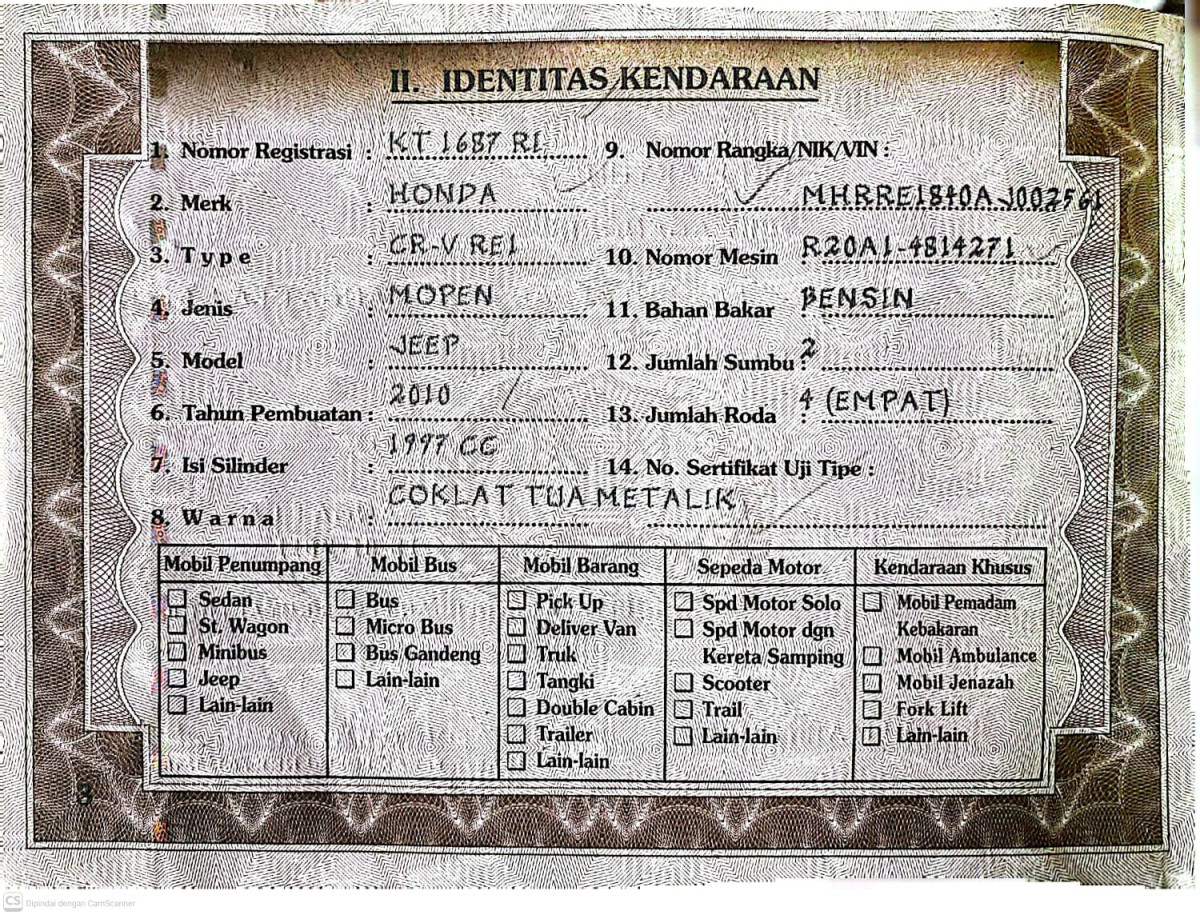 II. IDENTITAS KENDARAAN
1. Nomor Registrasi : KT 1687 RL
2. Merk : HONDA
3. Type : CR-V RE1
4. Jenis : MOPEN
5. Model : JEEP
6. Tahun Pembuatan : 2010
7. Isi Silinder : 1997 CC
8. Warna : COKLAT TUA METALIK
9. Nomor Rangka/NIK/VIN :
MHRRE1840AJ002561
10. Nomor Mesin : R20A1-4814271
11. Bahan Bakar : BENSIN
12. Jumlah Sumbu : 2
13. Jumlah Roda : 4 (EMPAT)
14. No. Sertifikat Uji Tipe :
Mobil Penumpang
Sedan
St. Wagon
Minibus
Jeep
Lain-lain
Mobil Bus
Bus
Micro Bus
Bus Gandeng
Lain-lain
Mobil Barang
Pick Up
Deliver Van
Truk
Tangki
Double Cabin
Trailer
Lain-lain
Sepeda Motor
Spd Motor Solo
Spd Motor dgn
Kereta Samping
Scooter
Trail
Lain-lain
Kendaraan Khusus
Mobil Pemadam
Kebakaran
Mobil Ambulance
Mobil Jenazah
Fork Lift
Lain-lain
8
CS Dipindai dengan CamScanner